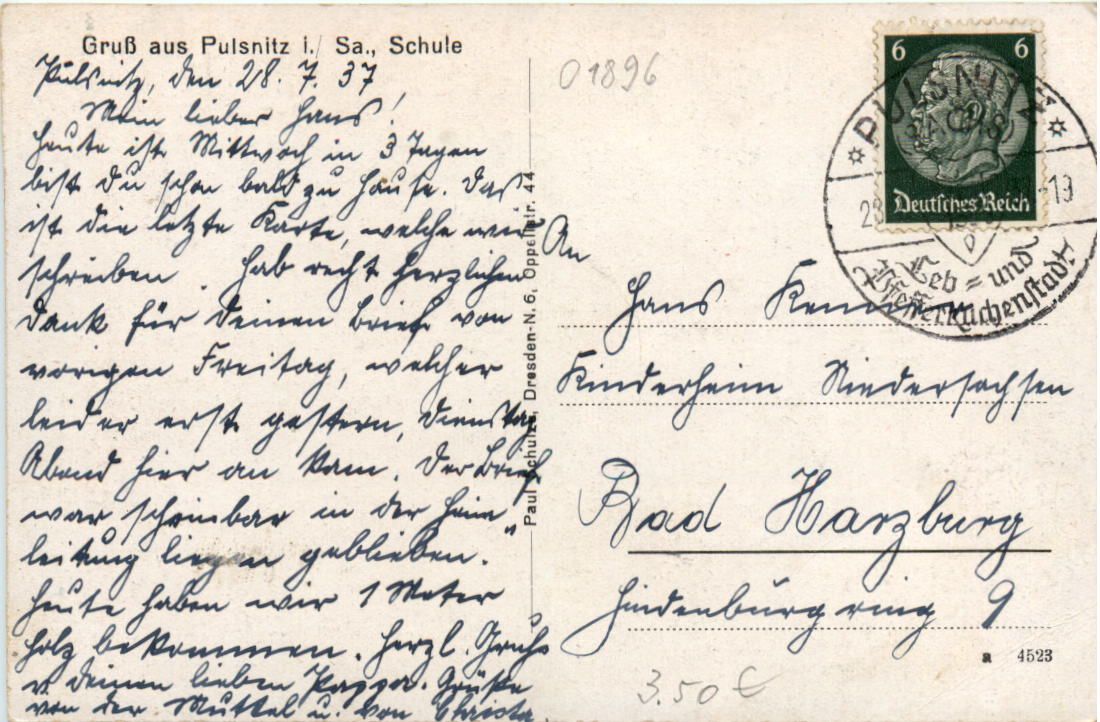 Gruß aus Pulsnitz i. Sa., Schule
Pulsnitz, den 28. 7. 37
Mein lieber Hans!
Heute ist Mittwoch in 3 Tagen
bist Du schon bald zu Hause. Das
ist die letzte Karte, welche wir
schreiben. Hab recht herzlichen
Dank für Deinen Brief von
vorigen Freitag, welcher
leider erst gestern, Dienstag
Abend hier an kam. Der Brief
war scheinbar in der Heim"
leitung liegen geblieben.
Heute haben wir 1 Meter
Holz bekommen. Herzl. Gruß
v. Deinen lieben Pappa. Grüße
von der Muttel u. von Christa.
Paul Schulze, Dresden-N. 6, Oppellstr. 44
01896
6 6
Deutsches Reich
PULSNITZ
28
-19
Leb = und
Pfefferkuchenstadt
An
Hans
Kinderheim Niedersachsen
Bad Harzburg
Hindenburgring 9
a 4523
3.50 €